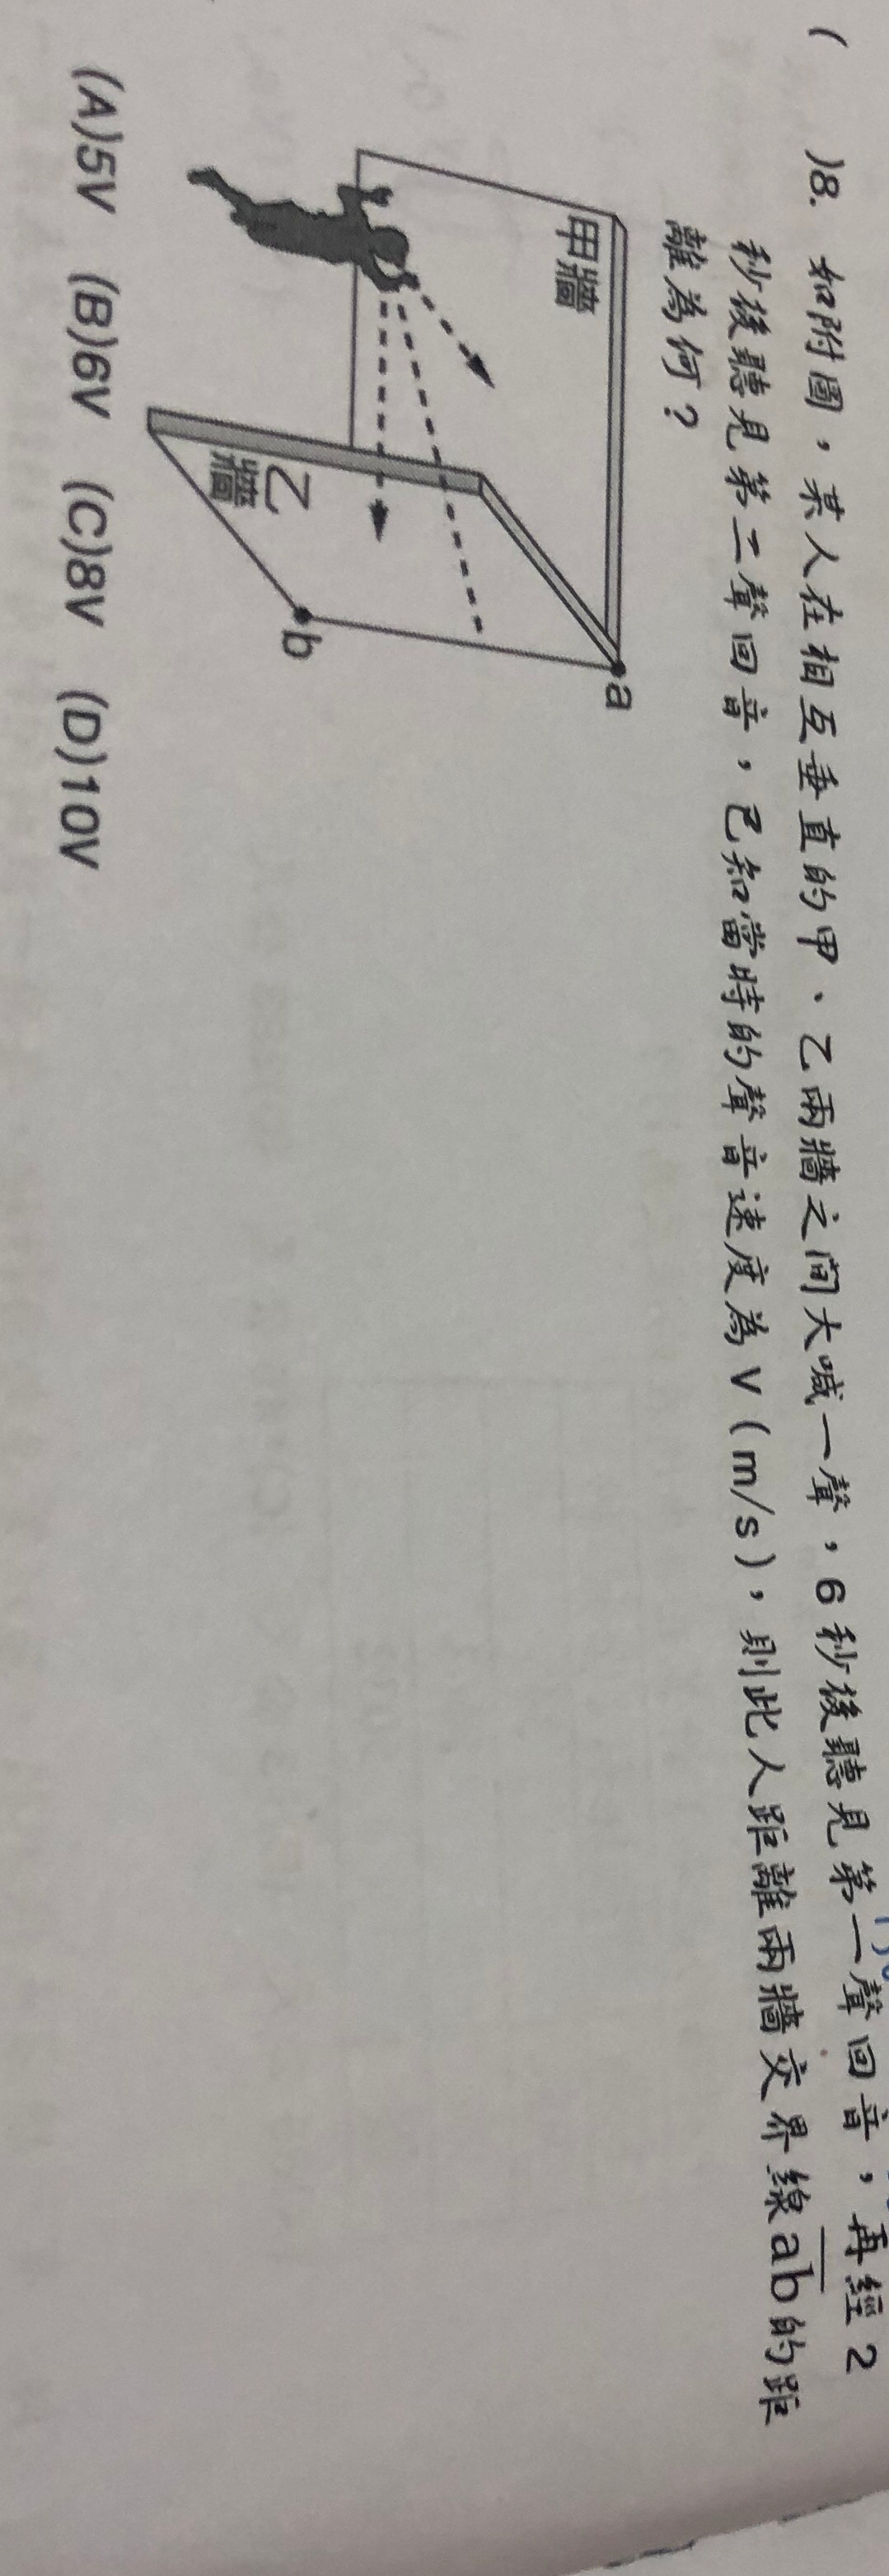 (　)8. 如附圖，某人在相互垂直的甲、乙兩牆之間大喊一聲，6秒後聽見第一聲回音，再經2
秒後聽見第二聲回音，已知當時的聲音速度為V(m/s)，則此人距離兩牆交界線ab的距
離為何？
甲牆
乙牆
a
b
(A)5V (B)6V (C)8V (D)10V